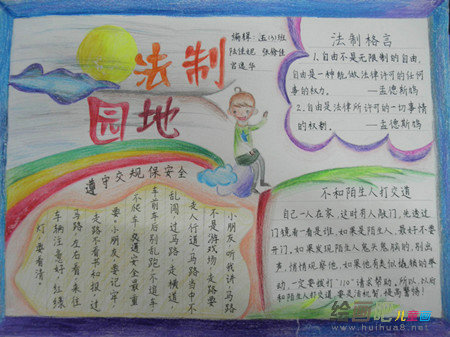 法制
园地
编辑:五(3)班
法制格言
1.自由不是无限制的自由,
自由是一种能做法律许可的任何
事的权力。 —孟德斯鸠
2.自由是法律所许可的一切事情
的权利。 —孟德斯鸠
遵守交规保安全
小朋友,听我讲,马路
不是游戏场,走路要
走人行道,马路当中不
乱闯,过马路,走横道,
车前车后别乱跑,不追车
不爬车,交通安全最重
要。小朋友,要记牢,
走路不看书和报,过
马路左右看来往
车辆注意好,红绿
灯,要看清。
不和陌生人打交道
自己一人在家,这时有人敲门,先透过
门镜看一看是谁,如果是陌生人,最好不要
开门,如果发现陌生人鬼头鬼脑的,别出
声,悄悄观察他,如果他有类似撬锁的举
动,一定要拨打"110"请求帮助。所以,以后
和陌生人打交道,要是清机智,提高警惕!
绘画吧儿童画
www.huihua8.net